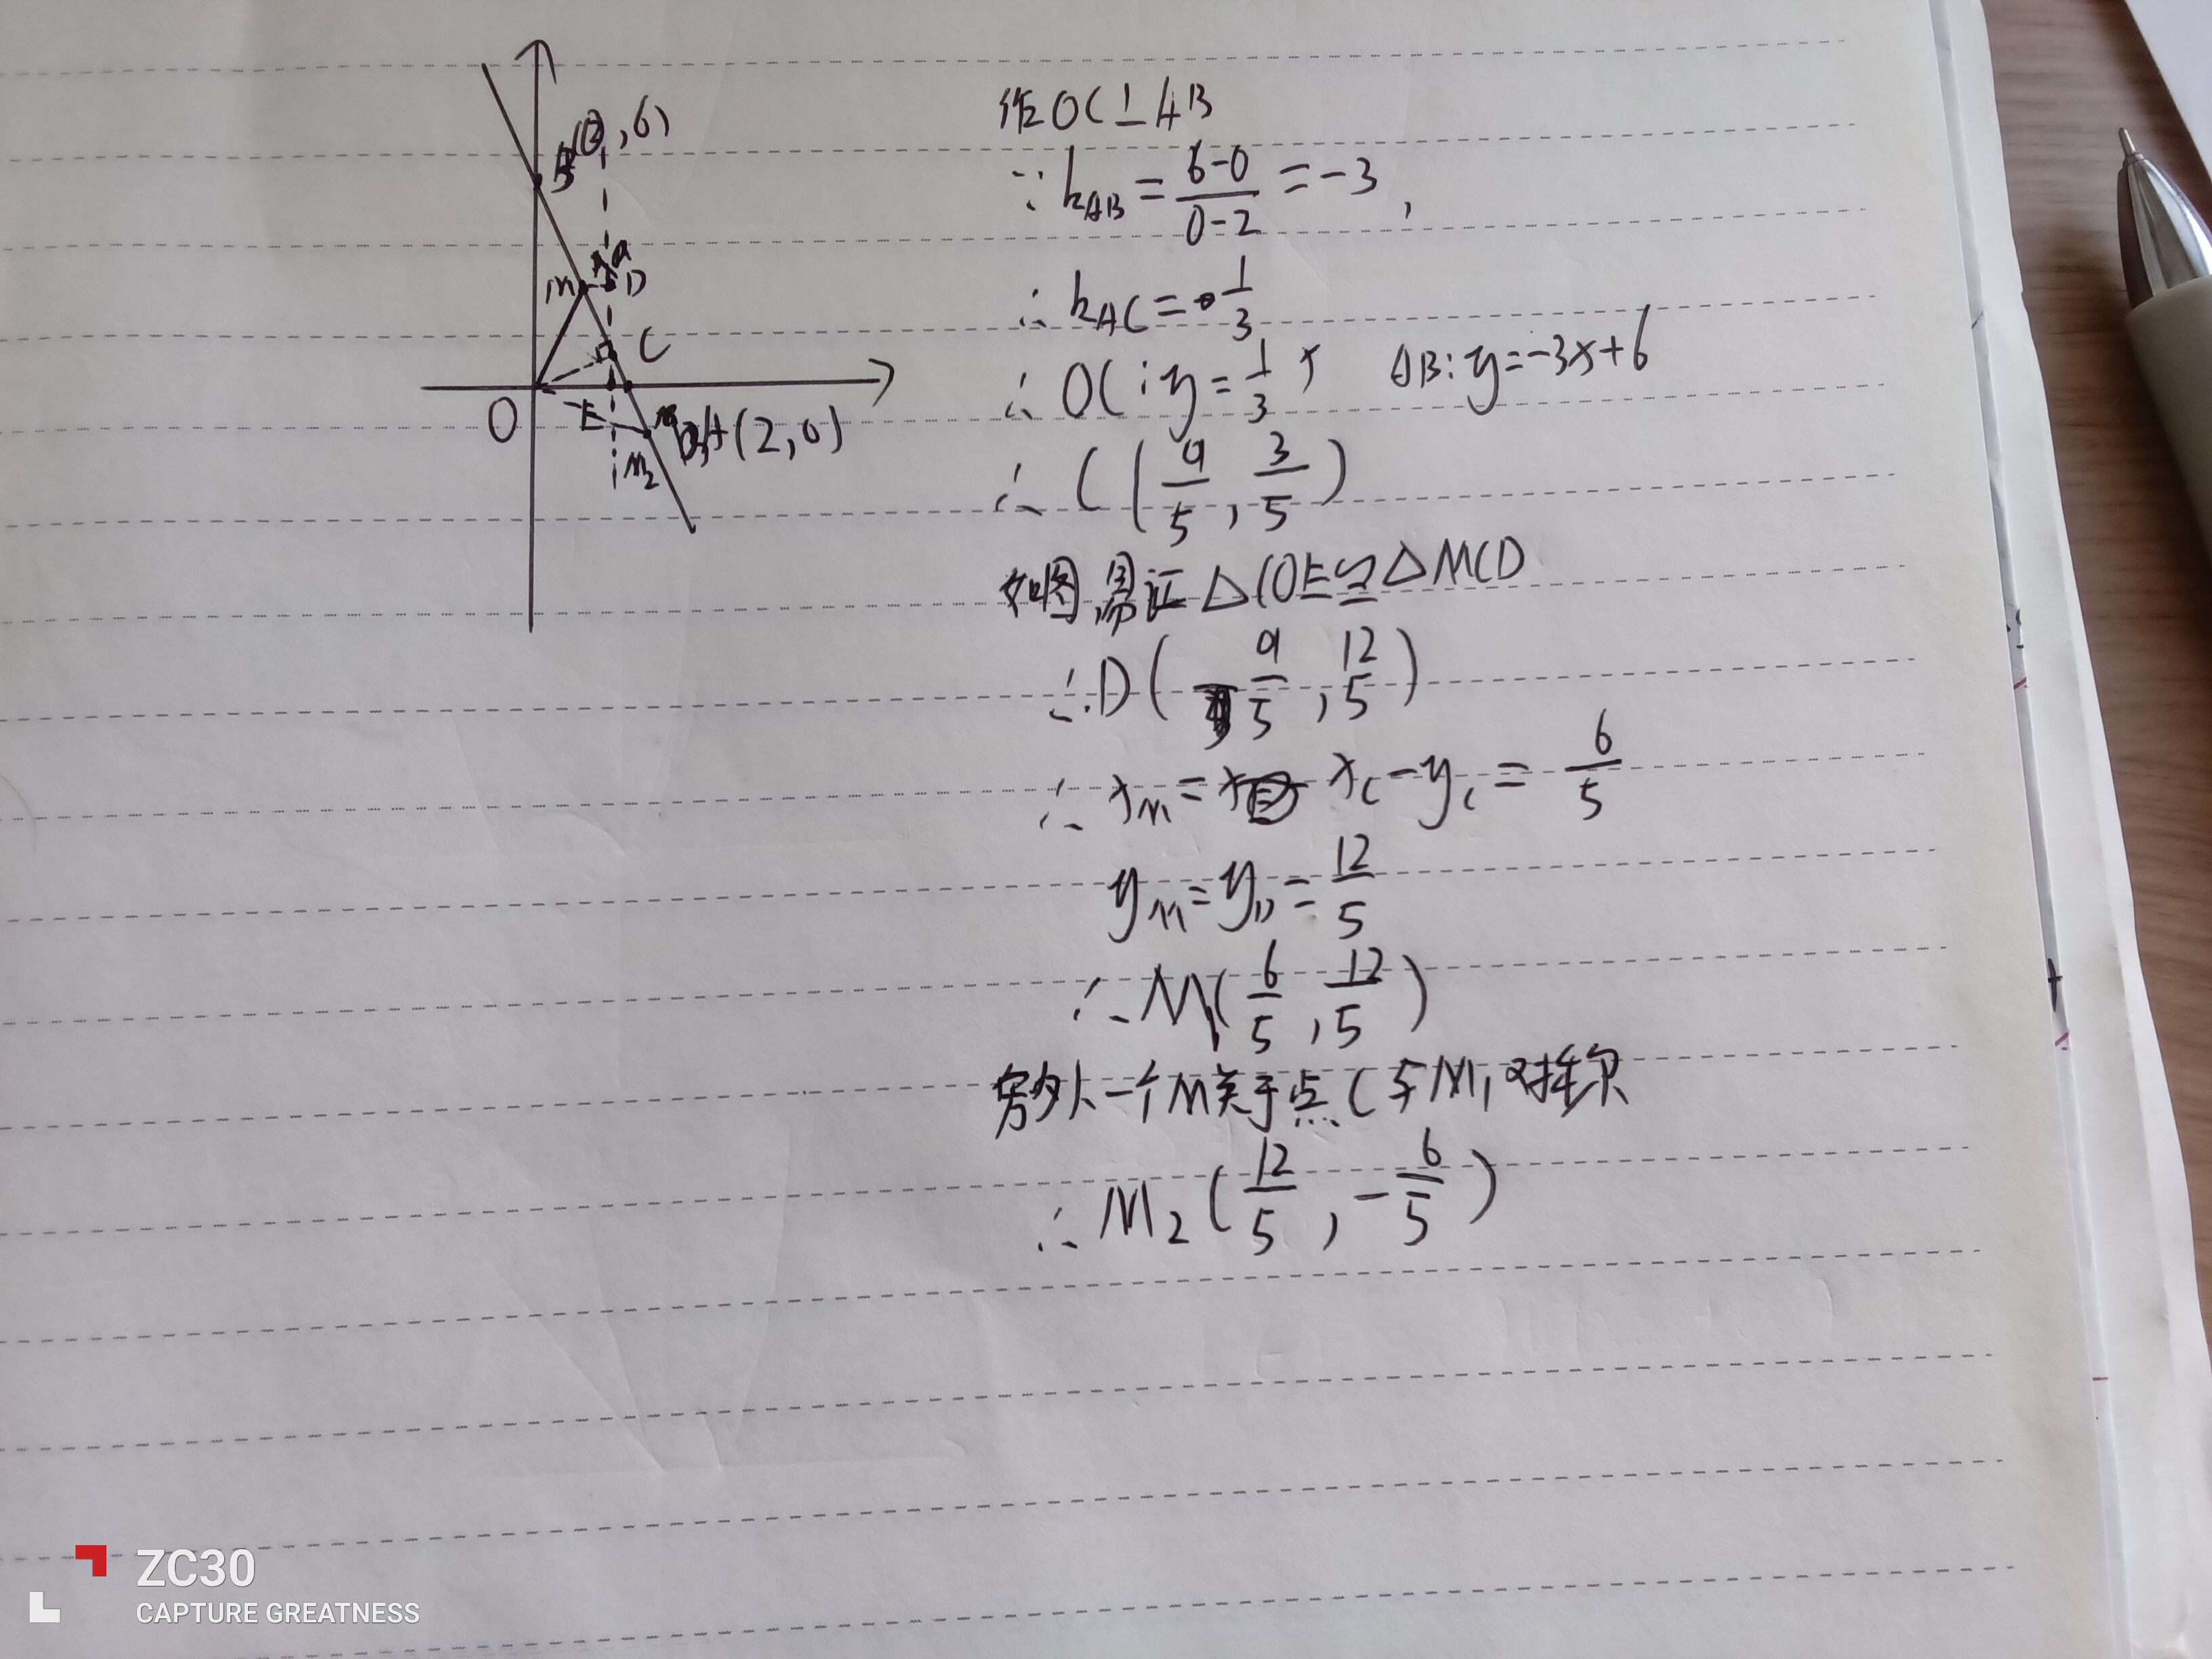 B(0,6)
M D
C
O E A(2,0)
M₂
作OC⊥AB
∵k_AB=\frac{6-0}{0-2}=-3,
∴k_AC=\frac{1}{3}
∴OC:y=\frac{1}{3}x AB:y=-3x+6
∴C(\frac{9}{5},\frac{3}{5})
如图,易证△COE≌△MCD
∴D(\frac{9}{5},\frac{12}{5})
∴x_M=x_C-y_C=\frac{6}{5}
y_M=y_D=\frac{12}{5}
∴M₁(\frac{6}{5},\frac{12}{5})
另外一个M关于点C与M₁对称
∴M₂(\frac{12}{5},-\frac{6}{5})
ZC30
CAPTURE GREATNESS